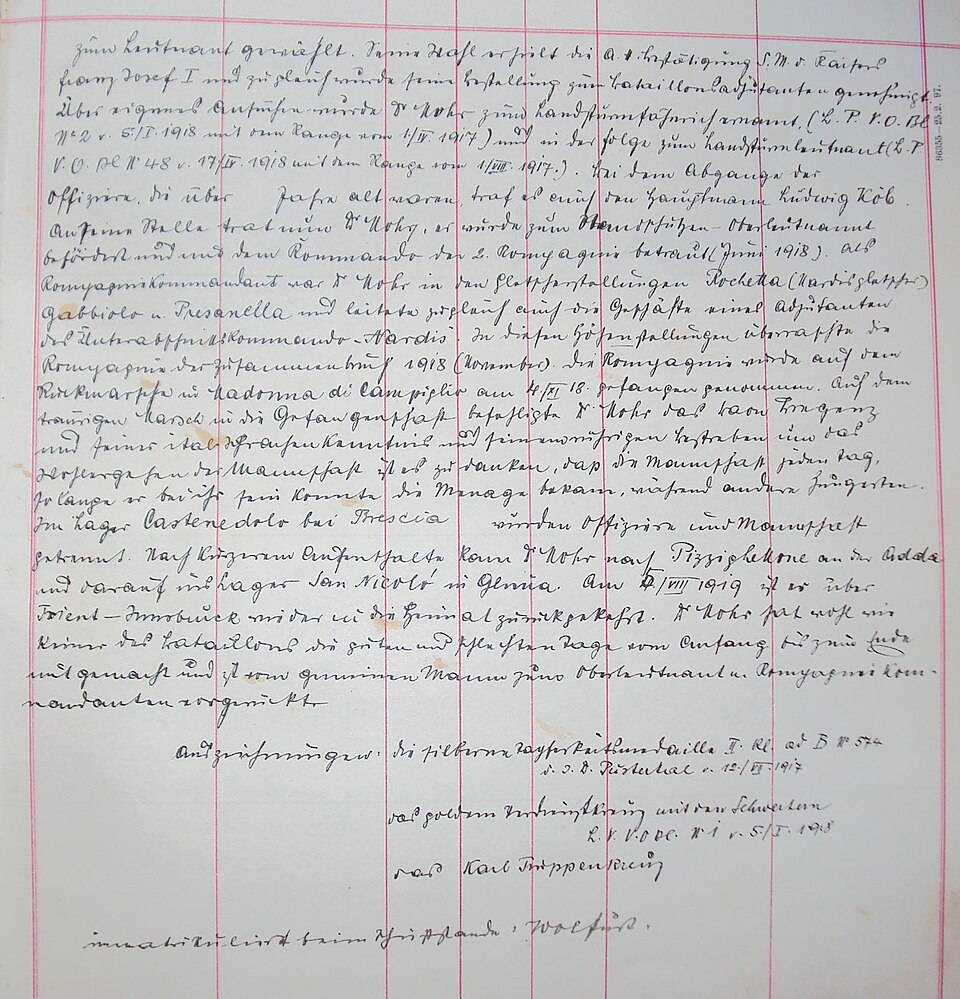 zum Leutnant gewählt. Seine Wahl erhielt die A. h. Bestätigung S. M. d. Kaisers
Franz Josef I und zugleich wurde seine Bestellung zum Bataillonsadjutanten genehmigt.
Über eigenes Ansuchen wurde Dr Mohr zum Landsturmfähnrich ernannt, (L. P. V. O. Bl
No 2 v. 5/I. 1918 mit dem Range vom 1/IV. 1917) und in der Folge zum Landsturmleutnant (L. P.
V. O. Bl No 48 v. 17/IV. 1918 mit dem Range vom 1/VIII. 1917.). Bei dem Abgange der
Offiziere, die über Jahre alt waren, traf es auch den Hauptmann Ludwig Köb.
An seine Stelle trat nun Dr Mohr, er wurde zum Standschützen-Oberleutnant
befördert und mit dem Kommando der 2. Kompagnie betraut (Juni 1918). Als
Kompagniekommandant war Dr Mohr in den Gletscherstellungen Rochetta (Nardisgletscher)
Gabbiolo u. Presanella und leitete zugleich auch die Geschäfte eines Adjutanten
des Unterabschnittskommando-Nardis. In diesen Höhenstellungen überraschte die
Kompagnie der Zusammenbruch 1918 (November). Die Kompagnie wurde auf dem
Rückmarsche in Madonna di Campiglio am 4/XI 18. gefangen genommen. Auf dem
traurigen Marsch in die Gefangenschaft befehligte Dr Mohr das Baon Bregenz
und seiner ital. Sprachenkenntnis und seinem rührigen Bestreben um das
Wohlergehen der Mannschaft ist es zu danken, daß die Mannschaft jeden Tag,
so lange er bei ihr sein konnte die Menage bekam, während andere hungerten.
Im Lager Castenedolo bei Brescia wurden Offiziere und Mannschaft
getrennt. Nach kürzerem Aufenthalte kam Dr Mohr nach Pizzighettone an der Adda
und darauf ins Lager San Nicolo in Genua. Am /VIII 1919 ist er über
Trient-Innsbruck wieder in die Heimat zurückgekehrt. Dr Mohr hat wohl wie
keiner des Bataillons die guten und schlechten Tage vom Anfang bis zum Ende
mit gemacht und ist vom gemeinen Mann zum Oberleutnant u. Kompagniekom-
mandanten vorgerückt
Auszeichnungen: die silberne Tapferkeitsmedaille II. Kl. ad B No 574
d. I. D. Pustertal v. 12./VII. 1917
das goldene Verdienstkreuz mit den Schwertern
L. P. V. O Bl. No 1 v. 5/I. 1918
das Karl Truppenkreuz
immatrikuliert beim Schießstande: Wolfurt.
86355-25. 2. 97.